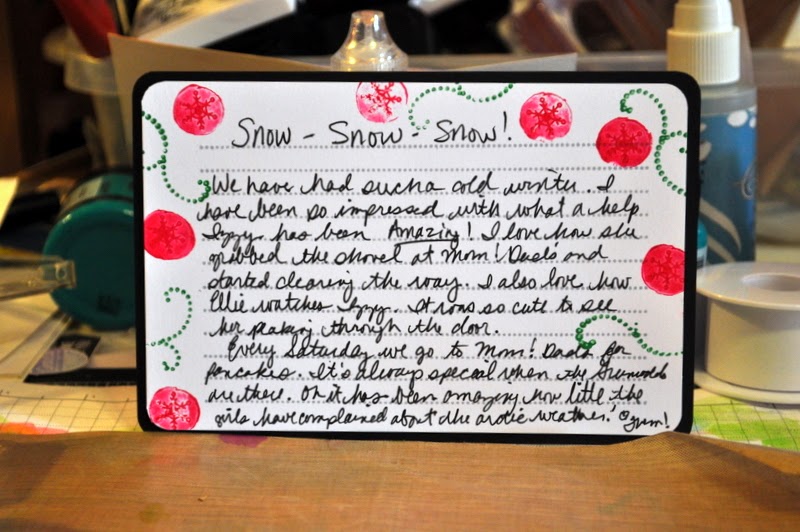 Snow - Snow - Snow!
We have had such a cold winter. I
have been so impressed with what a help
Izzy has been Amazing! I love how she
grabbed the shovel at Mom! Dad's and
started clearing the way. I also love how
Ellie watches Izzy. It was so cute to see
her peaking through the door.
Every Saturday we go to Mom! Dad's for
pancakes. It's always special when the
are there. Oh it has been amazing how little the
girls have complained about the arctic weather!